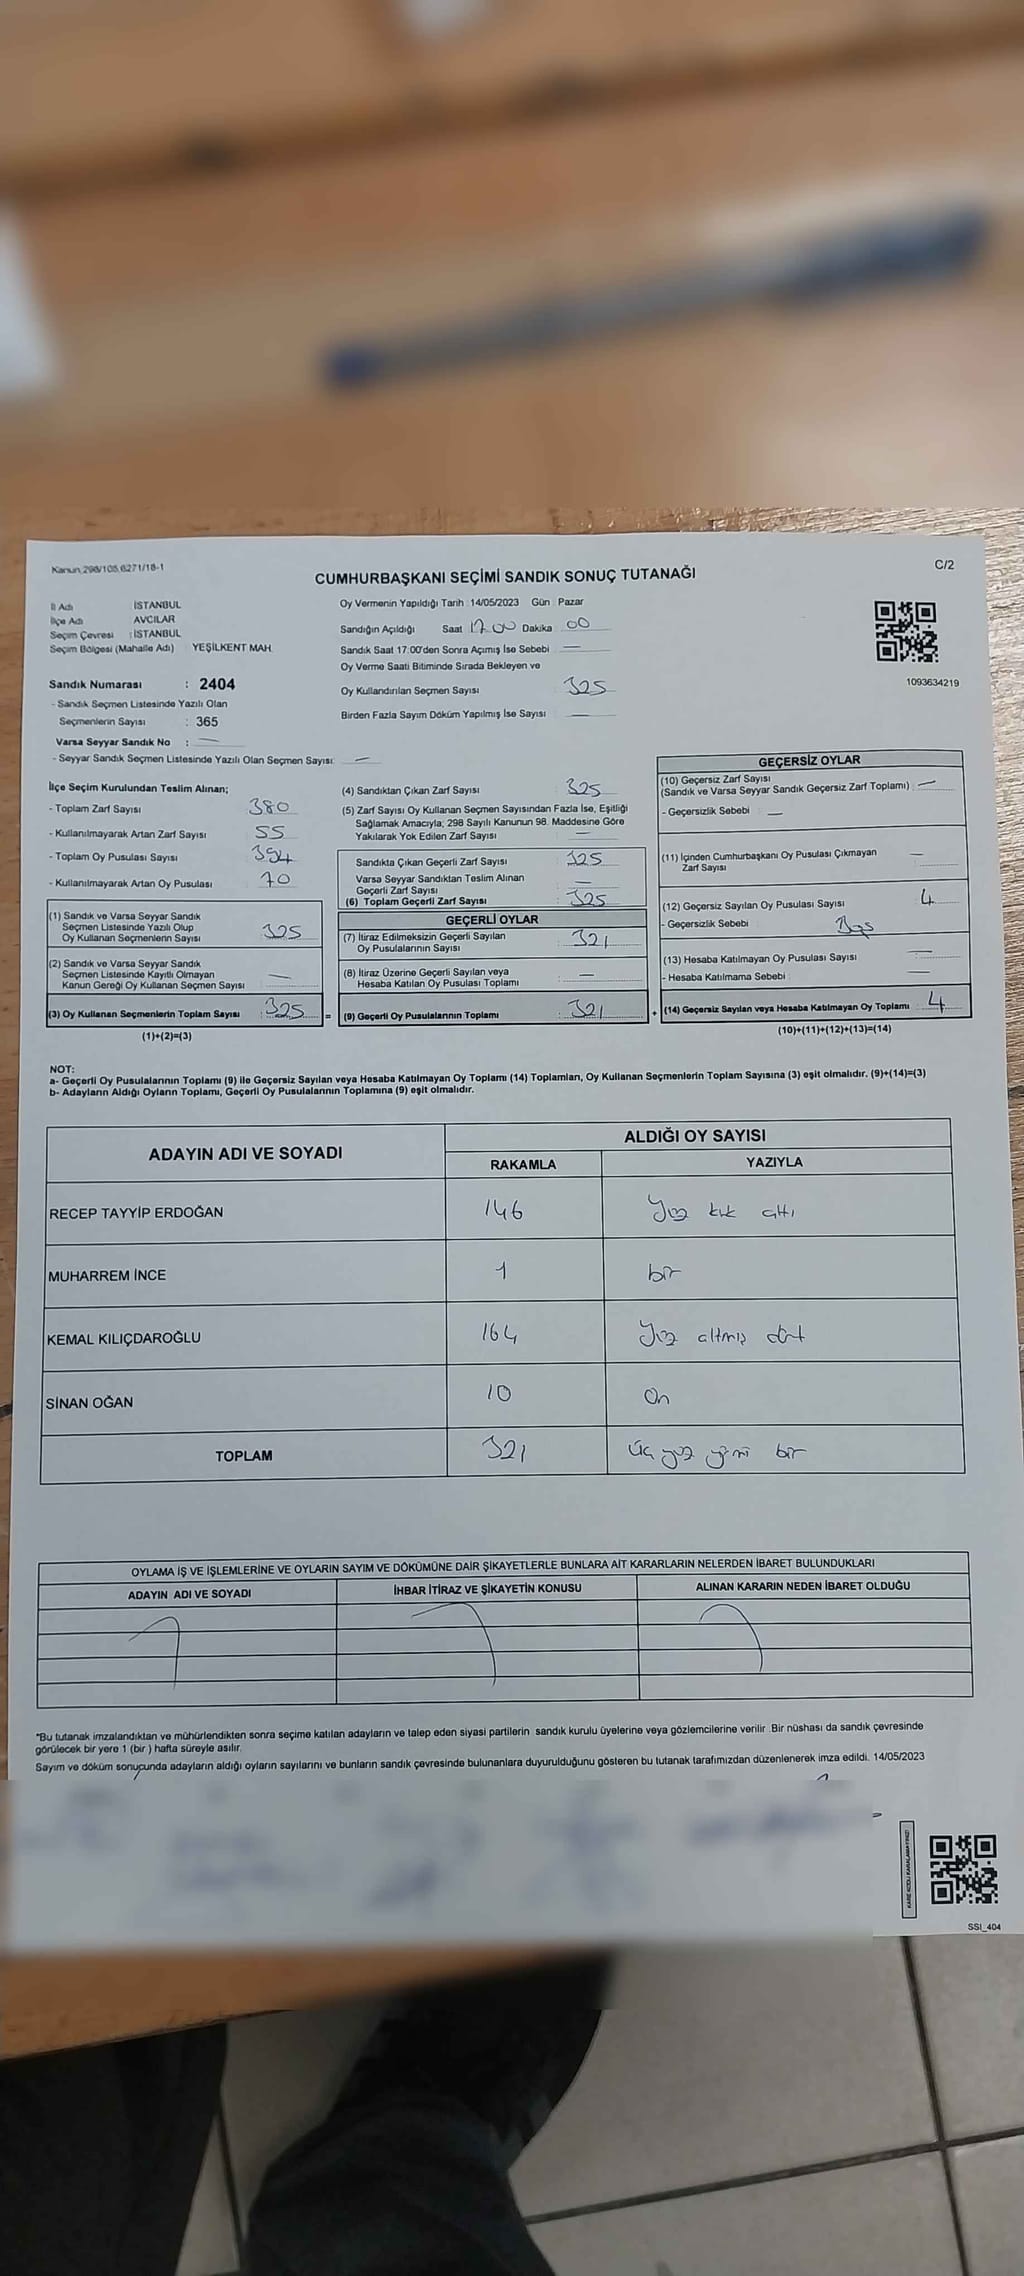 Kanun:298/105,6271/18-1
C/2
CUMHURBAŞKANI SEÇİMİ SANDIK SONUÇ TUTANAĞI
İl Adı İSTANBUL
İlçe Adı AVCILAR
Seçim Çevresi : İSTANBUL
Seçim Bölgesi (Mahalle Adı) YEŞİLKENT MAH.
Sandık Numarası : 2404
- Sandık Seçmen Listesinde Yazılı Olan
Seçmenlerin Sayısı : 365
Varsa Seyyar Sandık No : —
- Seyyar Sandık Seçmen Listesinde Yazılı Olan Seçmen Sayısı: —
Oy Vermenin Yapıldığı Tarih : 14/05/2023 Gün : Pazar
Sandığın Açıldığı Saat 17.00 Dakika 00
Sandık Saat 17:00'den Sonra Açımış İse Sebebi —
Oy Verme Saati Bitiminde Sırada Bekleyen ve
Oy Kullandırılan Seçmen Sayısı 325
Birden Fazla Sayım Döküm Yapılmış İse Sayısı —
1093634219
İlçe Seçim Kurulundan Teslim Alınan;
- Toplam Zarf Sayısı 380
- Kullanılmayarak Artan Zarf Sayısı 55
- Toplam Oy Pusulası Sayısı 394
- Kullanılmayarak Artan Oy Pusulası 70
(1) Sandık ve Varsa Seyyar Sandık
Seçmen Listesinde Yazılı Olup
Oy Kullanan Seçmenlerin Sayısı 325
(2) Sandık ve Varsa Seyyar Sandık
Seçmen Listesinde Kayıtlı Olmayan
Kanun Gereği Oy Kullanan Seçmen Sayısı —
(3) Oy Kullanan Seçmenlerin Toplam Sayısı : 325 =
(1)+(2)=(3)
(4) Sandıktan Çıkan Zarf Sayısı 325
(5) Zarf Sayısı Oy Kullanan Seçmen Sayısından Fazla İse, Eşitliği
Sağlamak Amacıyla; 298 Sayılı Kanunun 98. Maddesine Göre
Yakılarak Yok Edilen Zarf Sayısı —
Sandıkta Çıkan Geçerli Zarf Sayısı 325
Varsa Seyyar Sandıktan Teslim Alınan
Geçerli Zarf Sayısı —
(6) Toplam Geçerli Zarf Sayısı 325
GEÇERLİ OYLAR
(7) İtiraz Edilmeksizin Geçerli Sayılan
Oy Pusulalarının Sayısı 321
(8) İtiraz Üzerine Geçerli Sayılan veya
Hesaba Katılan Oy Pusulası Toplamı —
(9) Geçerli Oy Pusulalarının Toplamı 321 +
GEÇERSİZ OYLAR
(10) Geçersiz Zarf Sayısı
(Sandık ve Varsa Seyyar Sandık Geçersiz Zarf Toplamı) —
- Geçersizlik Sebebi : —
(11) İçinden Cumhurbaşkanı Oy Pusulası Çıkmayan
Zarf Sayısı —
(12) Geçersiz Sayılan Oy Pusulası Sayısı 4
- Geçersizlik Sebebi :
(13) Hesaba Katılmayan Oy Pusulası Sayısı —
- Hesaba Katılmama Sebebi : —
(14) Geçersiz Sayılan veya Hesaba Katılmayan Oy Toplamı 4
(10)+(11)+(12)+(13)=(14)
NOT:
a- Geçerli Oy Pusulalarının Toplamı (9) ile Geçersiz Sayılan veya Hesaba Katılmayan Oy Toplamı (14) Toplamları, Oy Kullanan Seçmenlerin Toplam Sayısına (3) eşit olmalıdır. (9)+(14)=(3)
b- Adayların Aldığı Oyların Toplamı, Geçerli Oy Pusulalarının Toplamına (9) eşit olmalıdır.
ADAYIN ADI VE SOYADI
ALDIĞI OY SAYISI
RAKAMLA YAZIYLA
RECEP TAYYİP ERDOĞAN 146 Yüz kırk altı
MUHARREM İNCE 1 bir
KEMAL KILIÇDAROĞLU 164 Yüz altmış dört
SİNAN OĞAN 10 On
TOPLAM 321 Üç yüz yirmi bir
OYLAMA İŞ VE İŞLEMLERİNE VE OYLARIN SAYIM VE DÖKÜMÜNE DAİR ŞİKAYETLERLE BUNLARA AİT KARARLARIN NELERDEN İBARET BULUNDUKLARI
ADAYIN ADI VE SOYADI İHBAR İTİRAZ VE ŞİKAYETİN KONUSU ALINAN KARARIN NEDEN İBARET OLDUĞU
*Bu tutanak imzalandıktan ve mühürlendikten sonra seçime katılan adayların ve talep eden siyasi partilerin sandık kurulu üyelerine veya gözlemcilerine verilir. Bir nüshası da sandık çevresinde
görülecek bir yere 1 (bir) hafta süreyle asılır.
Sayım ve döküm sonucunda adayların aldığı oyların sayılarını ve bunların sandık çevresinde bulunanlara duyurulduğunu gösteren bu tutanak tarafımızdan düzenlenerek imza edildi. 14/05/2023
KARE KODU KARALAMAYINIZ!
SSI_404